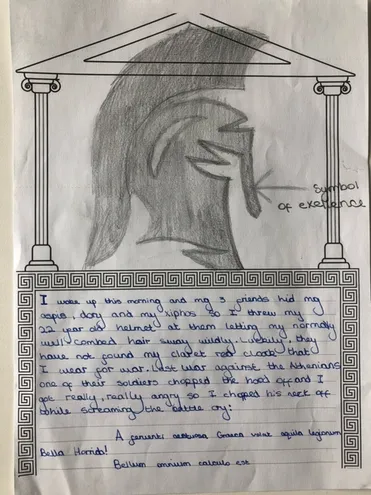 Symbol
of exellence
I woke up this morning and my 3 friends hid my
aspis, dory and my xiphos so I threw my
22 year old helmet at them letting my normally
well combed hair sway wildly. Luckily, they
have not found my claret red cloak that
I wear for war. Last war against the Athenians
one of their soldiers chopped the hood off and I
got really, really angry so I choped his neck off
while screaming the battle cry:
A Graeca volat aquila legionum
Bella Horrida!
Bellum omnium calculo est